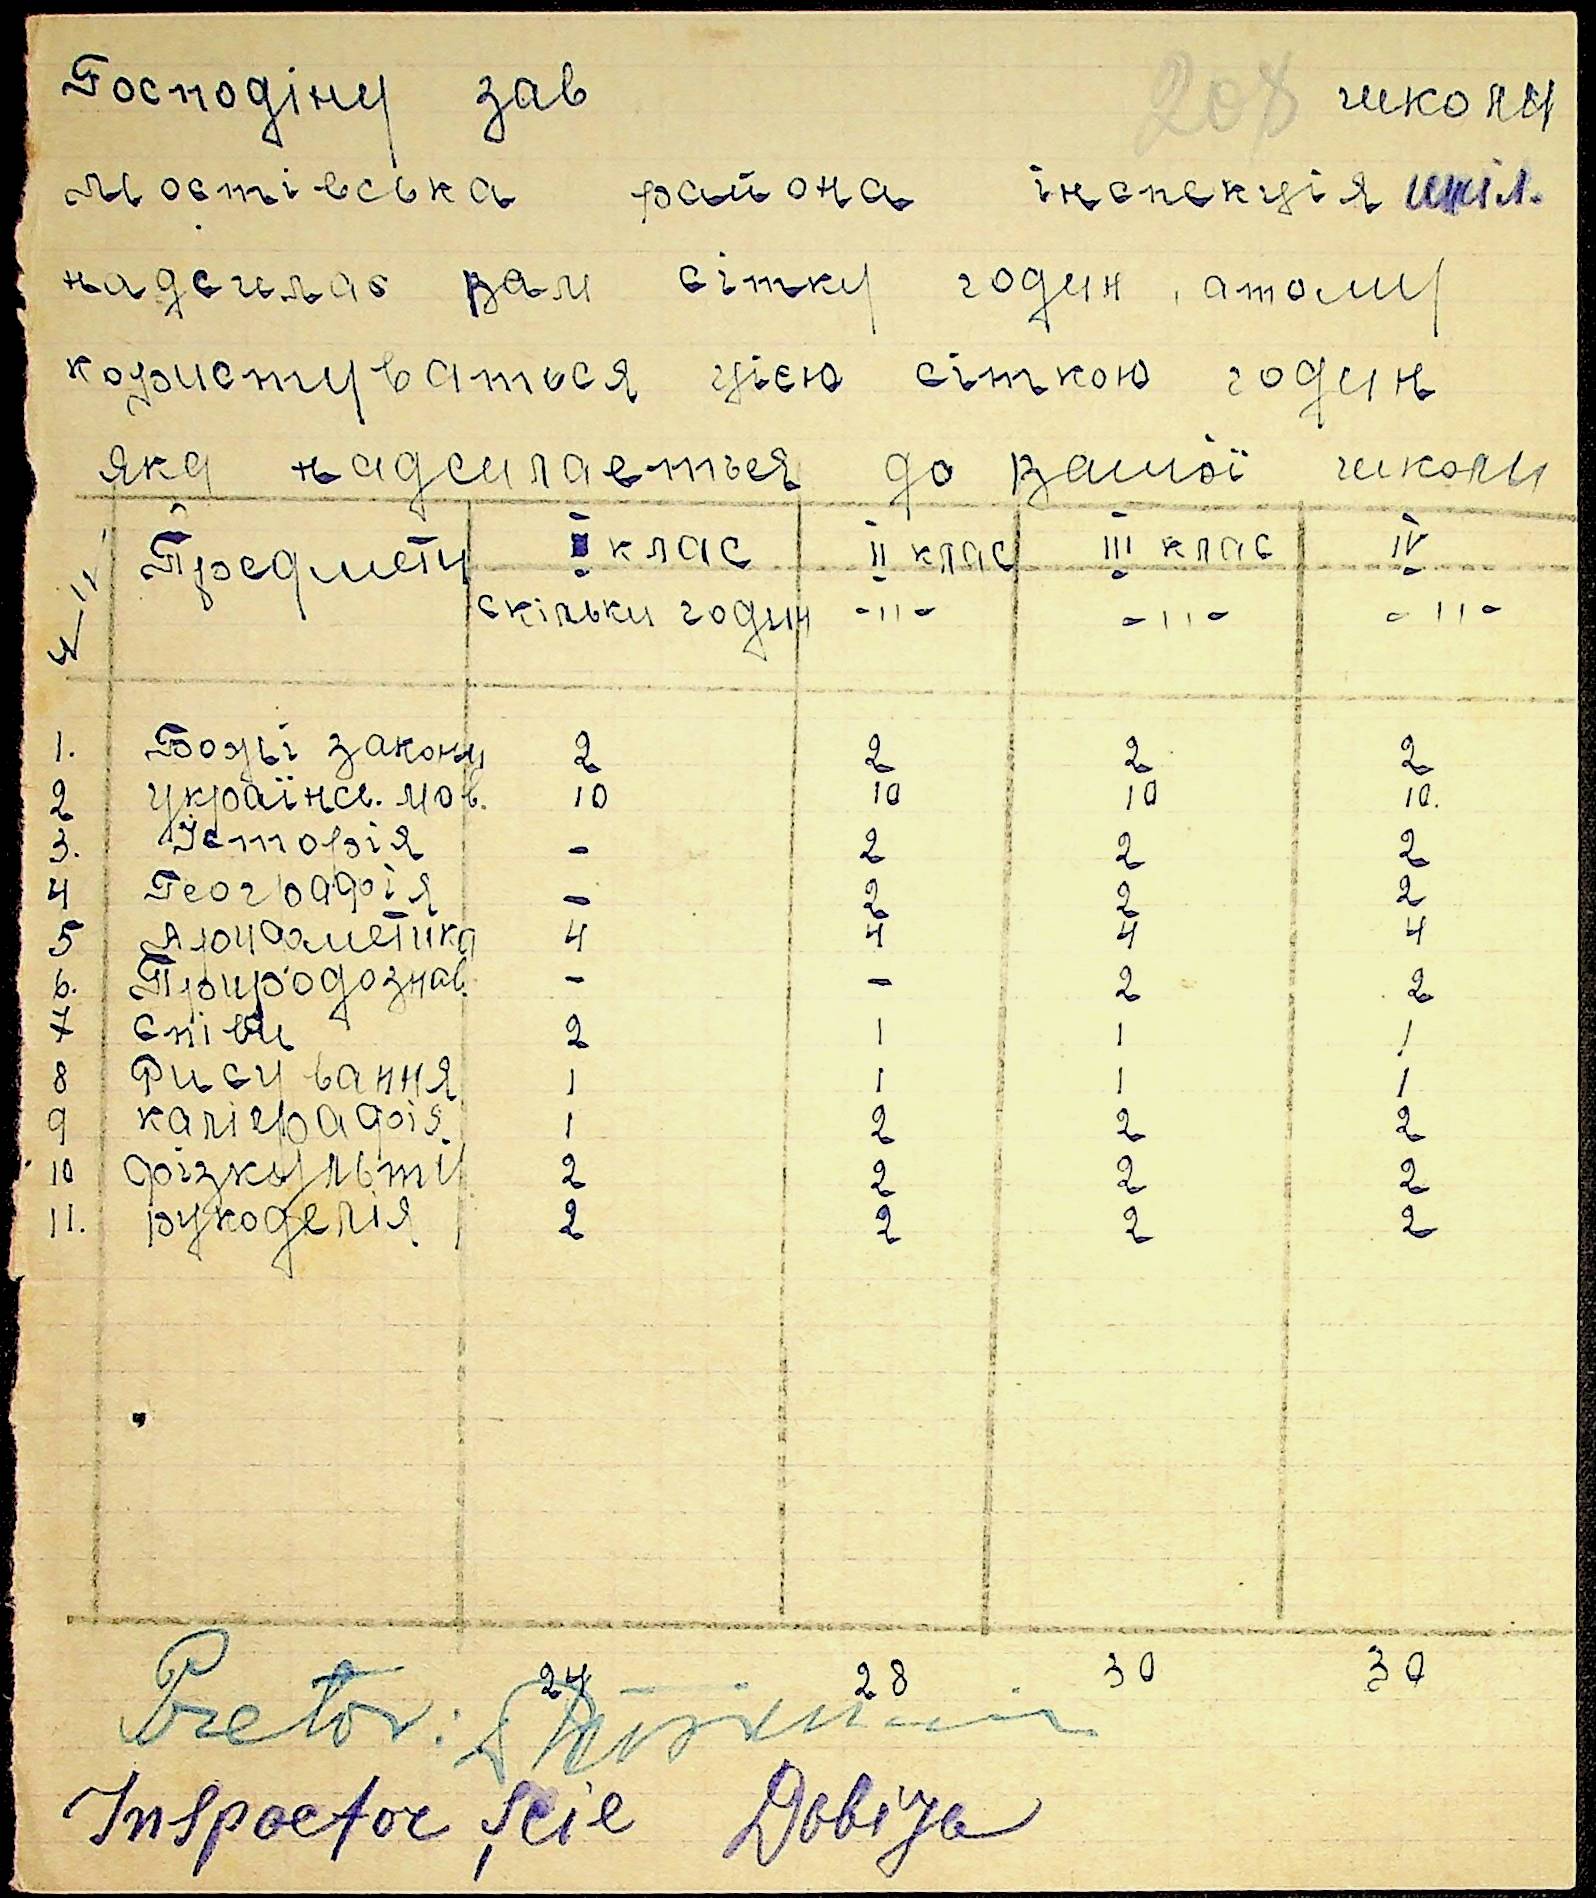 Господіну зав 208 школи
Мостівська района інспекція шкіл.
надсилає вам сітку годин, атому
користуваться цією сіткою годин
яка надсилаеться до вашої школи
Предмети I клас II клас III клас IV
скільки годин -11- -11- -11-
1. Божьі закони 2 2 2 2
2 українсь. мов. 10 10 10 10.
3. Історія - 2 2 2
4 Географія - 2 2 2
5 Арифметика 4 4 4 4
6. Природознав. - - 2 2
7 співи 2 1 1 1
8 Рисування 1 1 1 1
9 каліграфія 1 2 2 2
10 фізкульту 2 2 2 2
11. рукоделія 2 2 2 2
24 28 30 30
Pretor:
Inspector